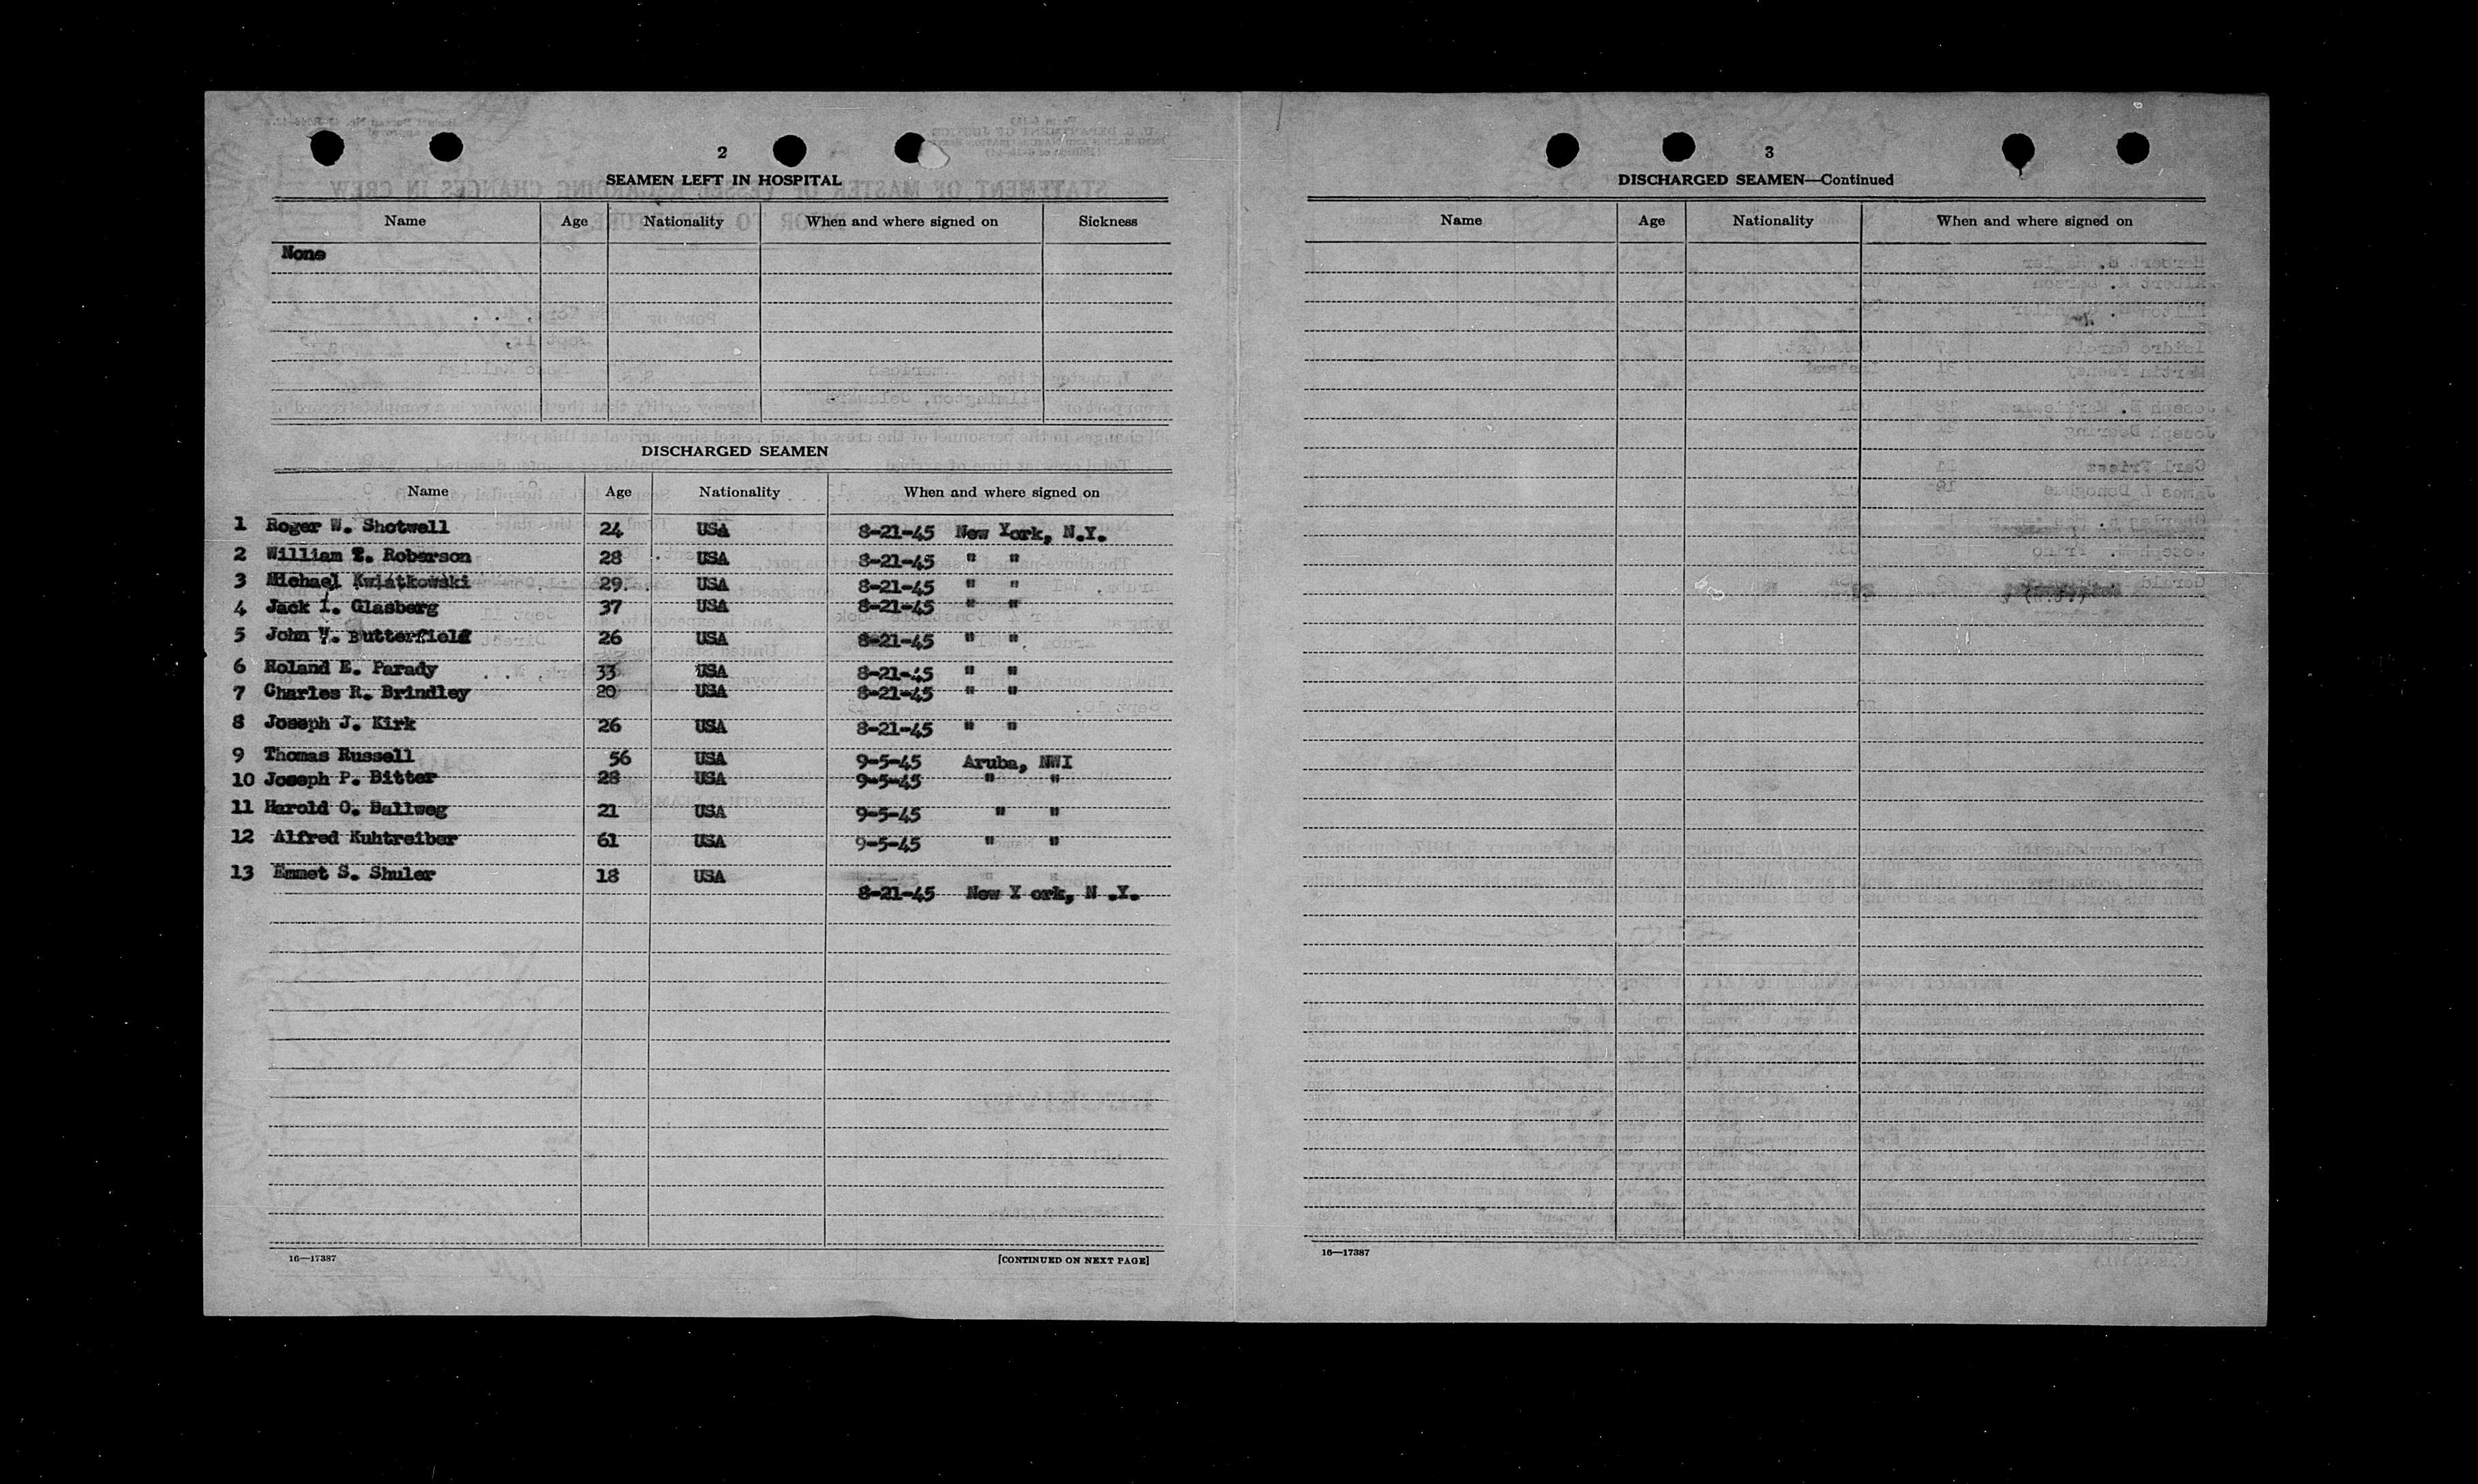 2
SEAMEN LEFT IN HOSPITAL
Name Age Nationality When and where signed on Sickness
None
DISCHARGED SEAMEN
Name Age Nationality When and where signed on
1 Roger W. Shotwell 24 USA 8-21-45 New York, N.Y.
2 William T. Roberson 28 USA 8-21-45 " "
3 Michael Kwiatkowski 29 USA 8-21-45 " "
4 Jack I. Glasberg 37 USA 8-21-45 " "
5 John Butterfield 26 USA 8-21-45 " "
6 Roland E. Parady 33 USA 8-21-45 " "
7 Charles R. Brindley 20 USA 8-21-45 " "
8 Joseph J. Kirk 26 USA 8-21-45 " "
9 Thomas Russell 56 USA 9-5-45 Aruba, NWI
10 Joseph P. Bitter 28 USA 9-5-45 " "
11 Harold O. Ballweg 21 USA 9-5-45 " "
12 Alfred Kuhtreiber 61 USA 9-5-45 " "
13 Emmet S. Shuler 18 USA
8-21-45 New Y ork, N .Y.
16—17387
[CONTINUED ON NEXT PAGE]
3
DISCHARGED SEAMEN—Continued
Name Age Nationality When and where signed on
16—17387